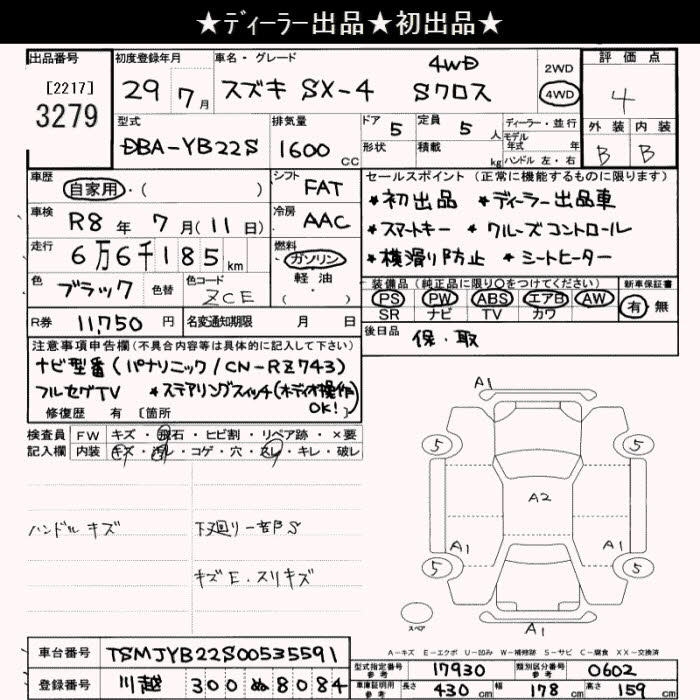 ★ディーラー出品★初出品★
出品番号
[2217]
3279
初度登録年月
29年 7月
車名・グレード
スズキ SX-4 Sクロス
4WD
2WD
4WD
評価点
4
外装 内装
B B
型式
DBA-YB22S
排気量
1600 CC
ドア 5
形状
定員 5 人
積載 kg
ディーラー・並行
モデル
年式 年
ハンドル 左・右
車歴
自家用・( )
シフト
FAT
セールスポイント (正常に機能するものに限ります)
車検
R8 年 7 月 (11 日)
冷房
AAC
* 初出品 * ディーラー出品車
* スマートキー * クルーズコントロール
* 横滑り防止 * シートヒーター
走行
6万6千185 km
燃料
ガソリン
軽油
( )
色
ブラック
色替
色コード
ZCE
装備品 (純正品に限り○をつけてください)
PS PW ABS エアB AW
SR ナビ TV カワ
新車保証書
有・無
R券 11,750 円
名変通知期限 月 日
後日品
保・取
注意事項申告欄(不具合内容等は具体的に記入して下さい)
ナビ型番 (パナソニック/CN-RZ743)
フルセグTV * ステアリングスイッチ(オーディオ操作OK!)
修復歴 有 [箇所 ]
検査員
記入欄
FW キズ・飛石・ヒビ割・リペア跡・×要
内装 キズ・汚レ・コゲ・穴・スレ・キレ・破レ
ハンドル キズ
下廻り一部S
キズE.スリキズ
A1
5
5
A2
A1
A1
5
5
スペア
A1
A-キズ E-エクボ U-凹み W-補修跡 S-サビ C-腐食 XX-交換済
車台番号 TSMJYB22S00535591
登録番号 川越 300 ぬ 8084
型式指定番号 参考 17930
類別区分番号 参考 0602
車庫証明用 参考 長さ 430 cm 幅 178 cm 高さ 159 cm